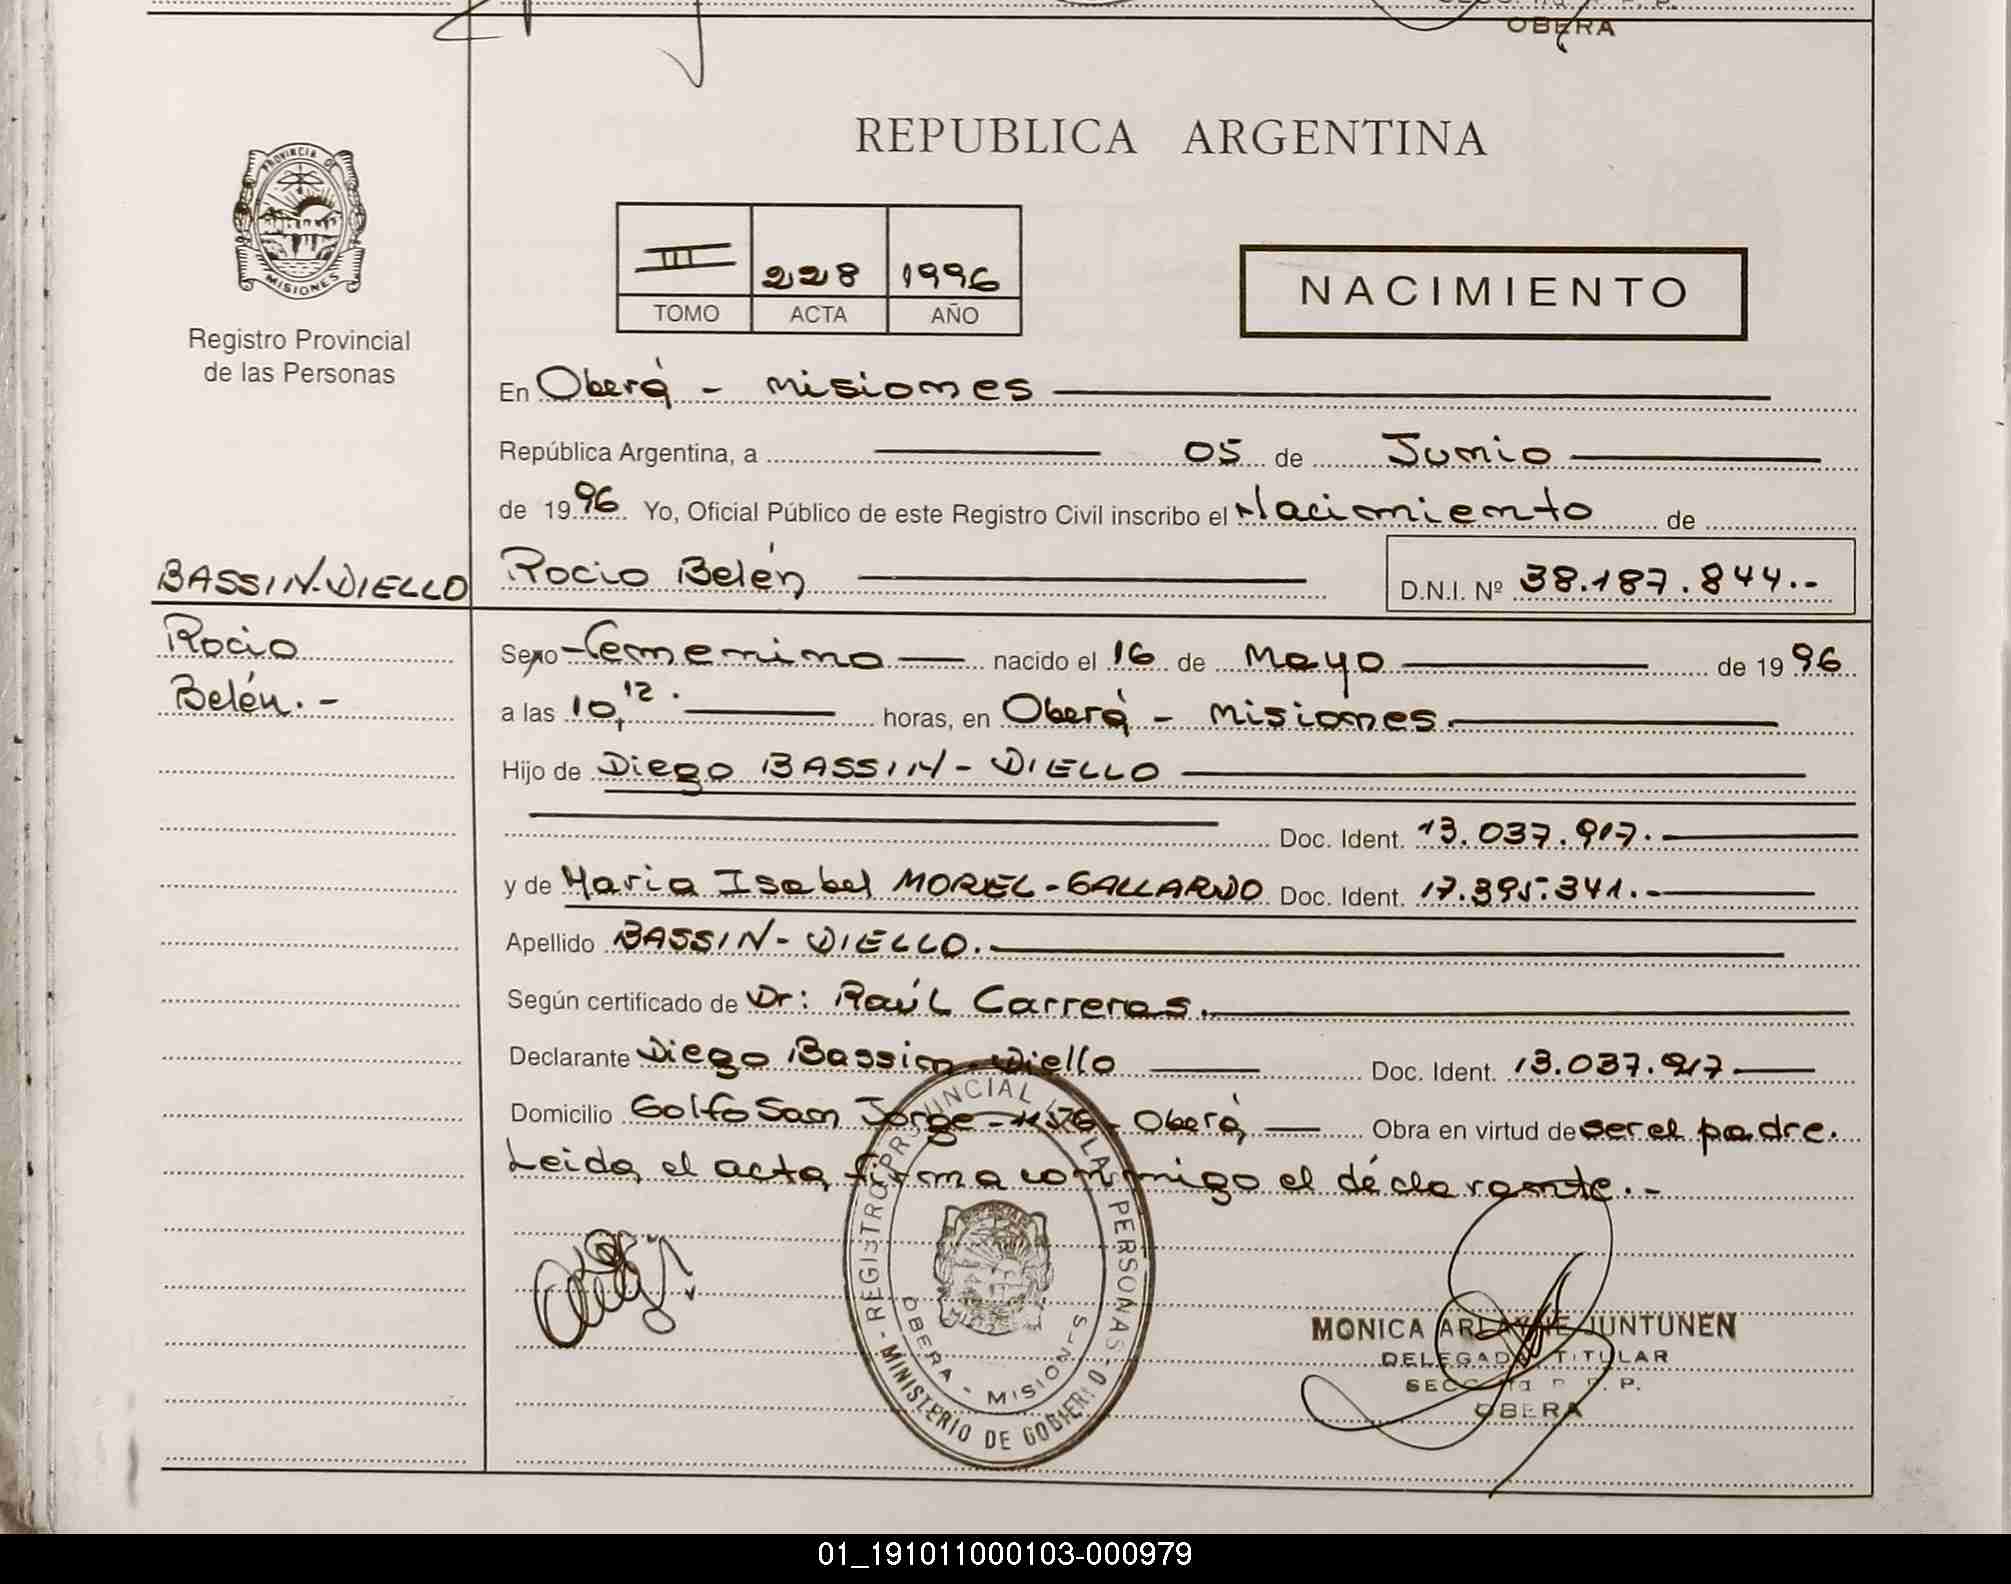 OBERA
REPUBLICA ARGENTINA
PROVINCIA DE
MISIONES
Registro Provincial
de las Personas
III 228 1996
TOMO ACTA AÑO
NACIMIENTO
En Oberá - Misiones
República Argentina, a 05 de Junio
de 1996 Yo, Oficial Público de este Registro Civil inscribo el Nacimiento de
BASSIN-DIELLO Rocio Belén D.N.I. Nº 38.187.844.-
Rocio
Belén.-
Sexo Femenino nacido el 16 de Mayo de 1996
a las 10,12. horas, en Oberá - Misiones.
Hijo de Diego BASSIN-DIELLO
Doc. Ident. 13.037.917.
y de Maria Isabel MOREL-GALLARDO Doc. Ident. 17.395.341.-
Apellido BASSIN-DIELLO.
Según certificado de Dr: Raúl Carreras.
Declarante Diego Bassin-Diello Doc. Ident. 13.037.917
Domicilio Golfo San Jorge - Oberá, Obra en virtud de ser el padre.
Leida el acta, firma conmigo el declarante.-
REGISTRO PROVINCIAL LAS PERSONAS
OBERA - MISIONES
MINISTERIO DE GOBIERNO
MONICA ARLAYNE JUNTUNEN
DELEGADA TITULAR
SECC. 1ra R. P. P.
OBERA
01_191011000103-000979